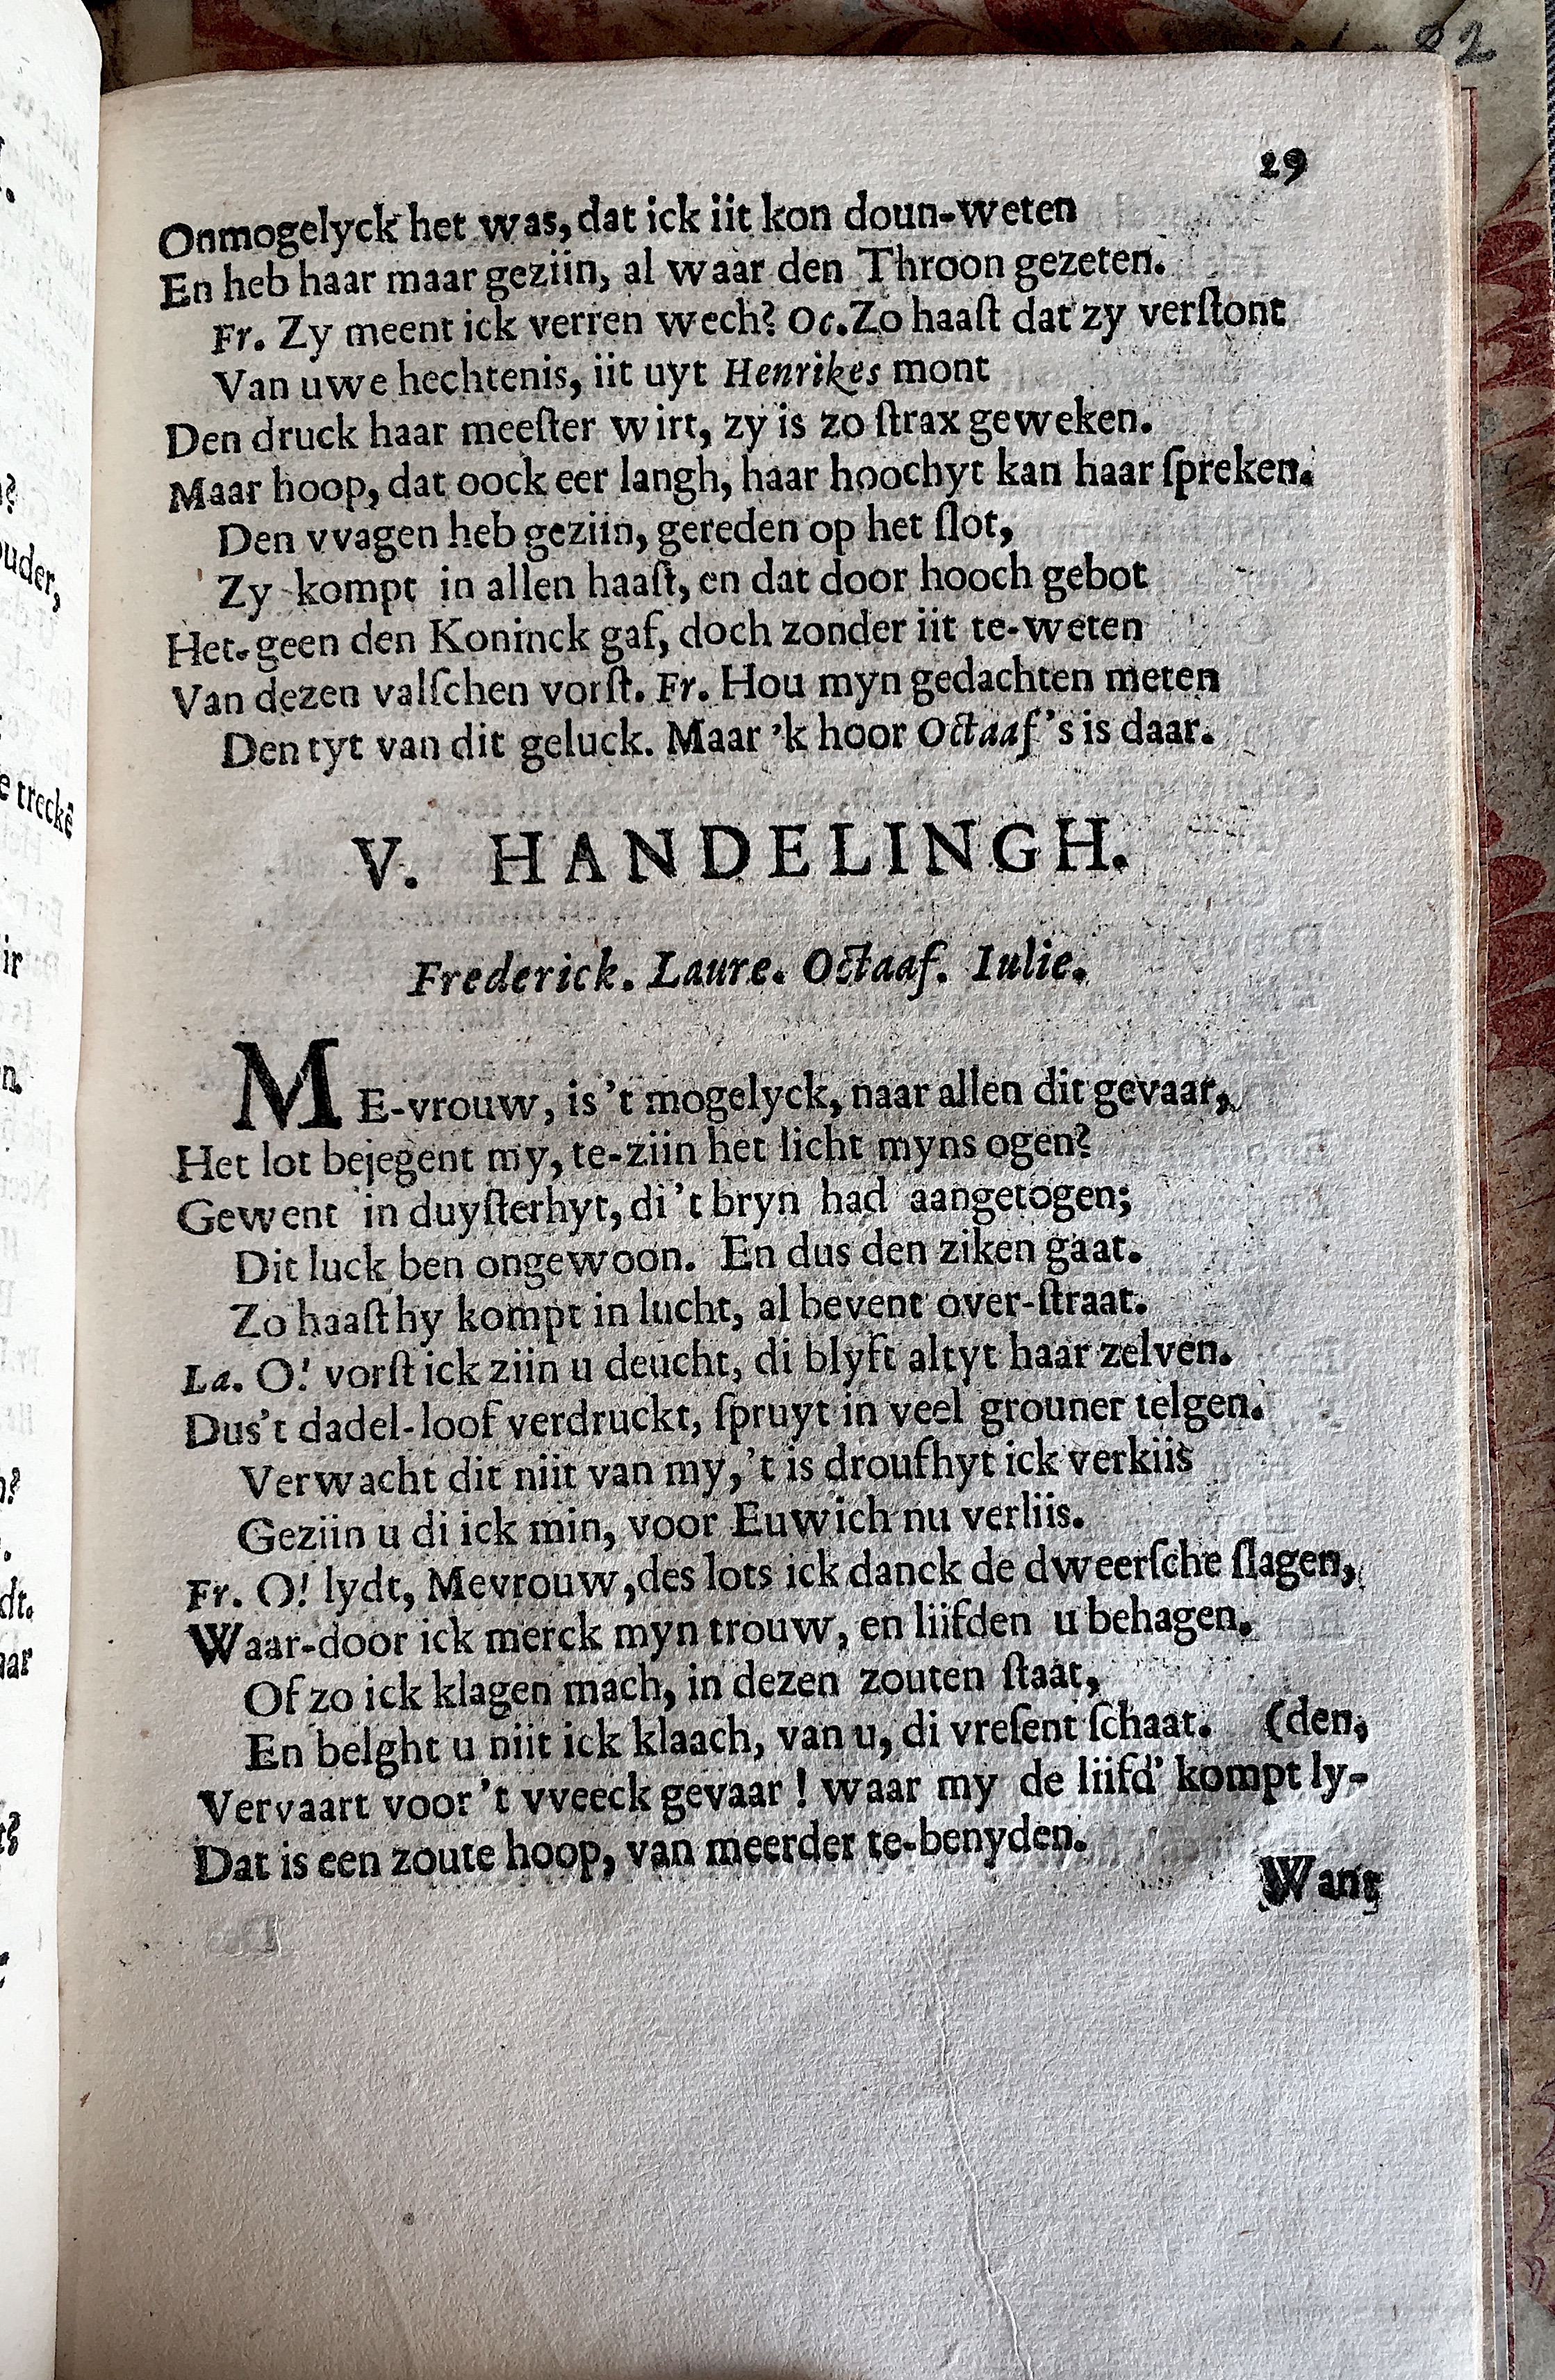 82
29
Onmogelyck het was, dat ick iit kon doun-weten
En heb haar maar geziin, al waar den Throon gezeten.
Fr. Zy meent ick verren wech? Oc. Zo haaſt dat zy verſtont
Van uwe hechtenis, iit uyt Henrikes mont
Den druck haar meeſter wirt, zy is zo ſtrax geweken.
Maar hoop, dat oock eer langh, haar hoochyt kan haar ſpreken.
Den vvagen heb geziin, gereden op het ſlot,
Zy kompt in allen haaſt, en dat door hooch gebot
Het-geen den Koninck gaf, doch zonder iit te-weten
Van dezen valſchen vorſt. Fr. Hou myn gedachten meten
Den tyt van dit geluck. Maar 'k hoor Octaaf 's is daar.
V. HANDELINGH.
Frederick. Laure. Octaaf. Iulie.
ME-vrouw, is 't mogelyck, naar allen dit gevaar,
Het lot bejegent my, te-ziin het licht myns ogen?
Gewent in duyſterhyt, di 't bryn had aangetogen;
Dit luck ben ongewoon. En dus den ziken gaat.
Zo haaſt hy kompt in lucht, al bevent over-ſtraat.
La. O! vorſt ick ziin u deucht, di blyft altyt haar zelven.
Dus 't dadel-loof verdruckt, ſpruyt in veel grouner telgen.
Verwacht dit niit van my, 't is droufhyt ick verkiis
Geziin u di ick min, voor Euwich nu verliis.
Fr. O! lydt, Mevrouw, des lots ick danck de dweerſche ſlagen,
Waar-door ick merck myn trouw, en liifden u behagen.
Of zo ick klagen mach, in dezen zouten ſtaat,
En belght u niit ick klaach, van u, di vreſent ſchaat. (den,
Vervaart voor 't vveeck gevaar! waar my de liifd' kompt ly-
Dat is een zoute hoop, van meerder te-benyden.
Want